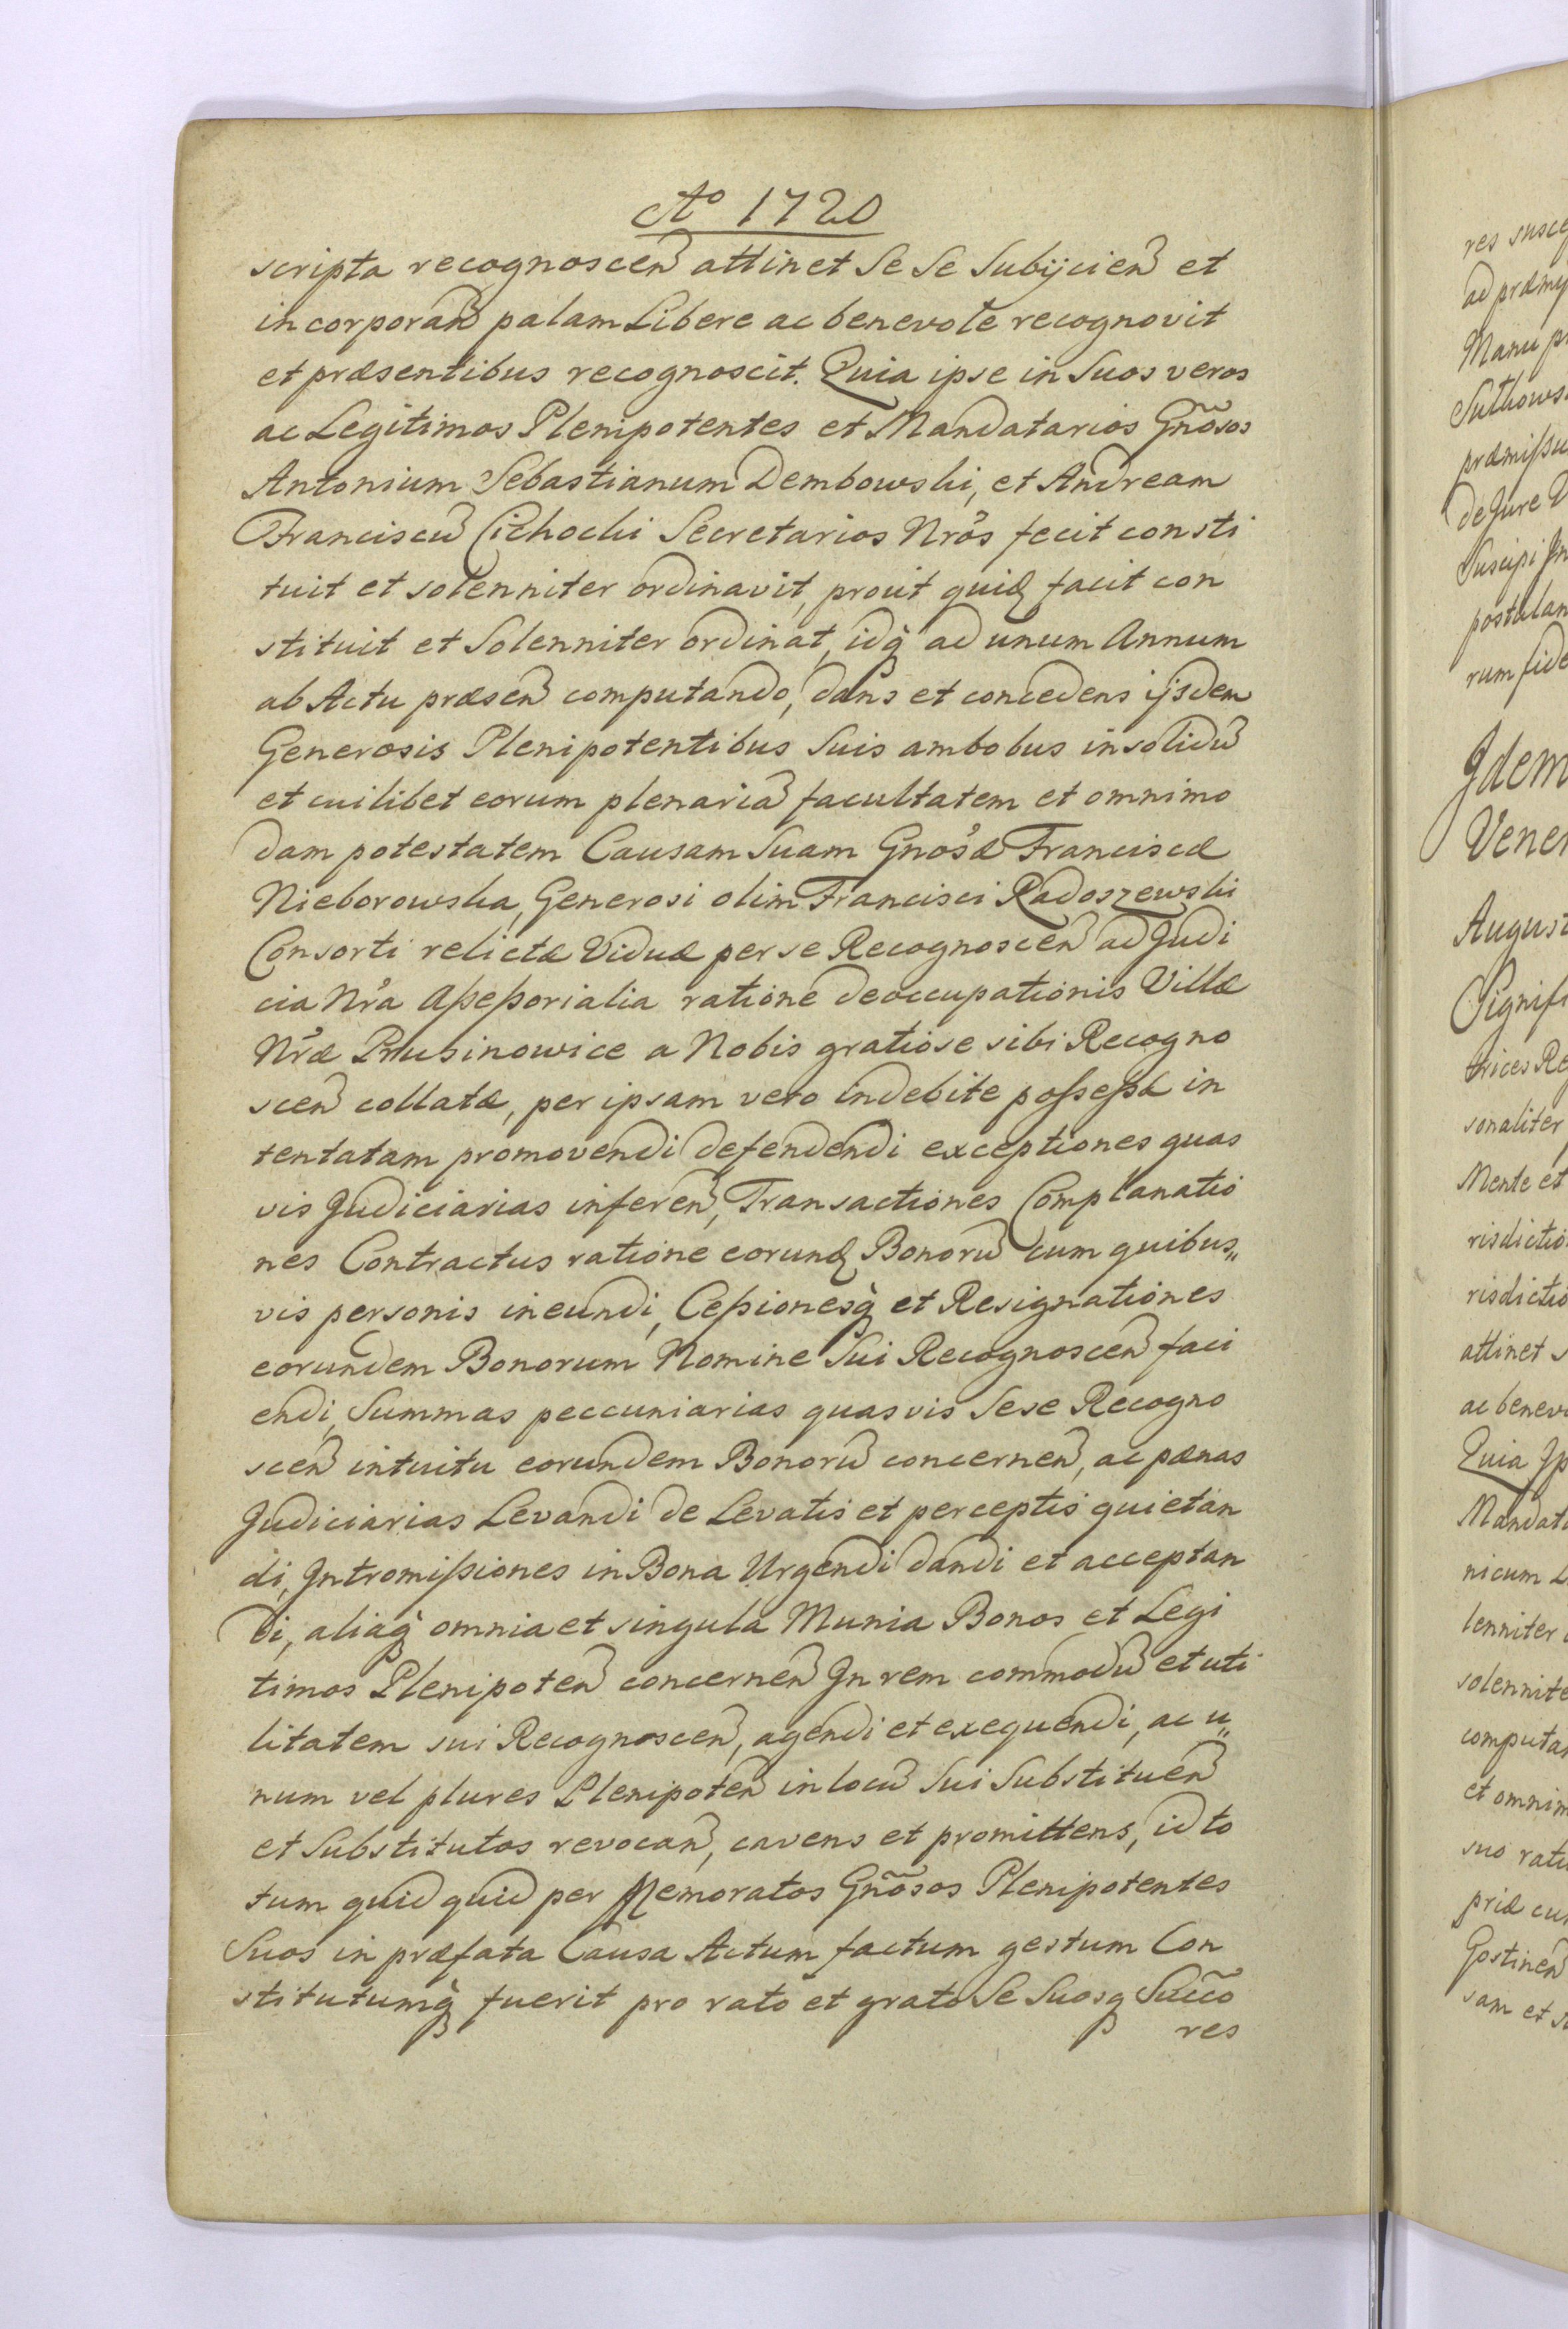 Ao 1720
scripta recognoscen̄ attinet Se Se Subijcien̄ et
incorporan̄ palam Libere ac benevole recognovit
et præsentibus recognoscit. Quia ipse in Suos veros
ac Legitimos Plenipotentes et Mandatarios Gñosos
Antonium Sebastianum Dembowski, et Andream
Franciscū Cichocki Secretarios Nr̃os fecit consti
tuit et solenniter ordinavit, prout quidē facit con
stituit et Solenniter ordinat, idq̀ ad unum Annum
ab Actu præsen̄ computando, dans et concedens ijsdem
Generosis Plenipotentibus Suis ambobus insolidū
et cuilibet eorum plenariā facultatem et omnimo
dam potestatem Causam Suam Gnos̃æ Franciscæ
Nieborowska, Generosi olim Francisci Radoszewski
Consorti relictæ Viduæ per se Recognoscen̄ ad Judi
cia Nr̃a Aßeßorialia ratione deoccupationis Villæ
Nr̃æ Prusinowice a Nobis gratiose sibi Recogno
scen̄ collatæ, per ipsam vero indebite poßeßæ in
tentatam promovendi defendendi exceptiones quas
vis Judiciarias inferen̄, Transactiones Complanatio
nes Contractus ratione eorundē Bonorū cum quibus„
vis personis ineundi, Ceßionesq̀ et Resignationes
eorundem Bonorum Nomine Sui Recognoscen̄ faci
endi, Summas peccuniarias quasvis Sese Recogno
scen̄ intuitu eorundem Bonorū concernen̄, ac pænas
Judiciarias Levandi de Levatis et perceptis quietan
di, Intromißiones in Bona Urgendi dandi et acceptan
di, aliaq̀ omnia et singula Munia Bonos et Legi
timos Plenipoten̄ concernen̄ In rem commodū et uti
litatem sui Recognoscen̄, agendi et exequendi, ac u„
num vel plures Plenipoten̄ in locū Sui Substituen̄
et Substitutos revocan̄, cavens et promittens, id to
tum quid quid per Memoratos Gñosos Plenipotentes
Suos in præfata Causa Actum factum gestum Con
stitutumq̀ fuerit pro rato et grato Se Suosq Succ̃o
res

ad
Manu
de Jure
postulan
Idem
August
trices
sonaliter
Mente et
attinet
Quia
nicum
lenniter
solennite
et omnim
suo
Gostinen̄
sam et